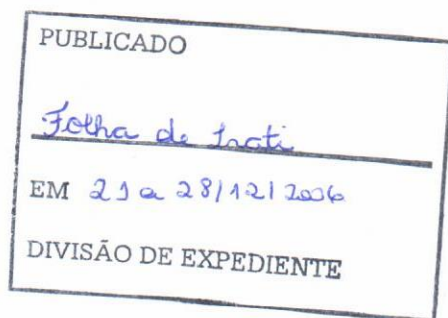 PUBLICADO
Folha de Irati
EM 21 a 28/12/2006
DIVISÃO DE EXPEDIENTE